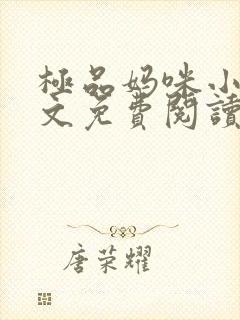 極品妈咪小
文免費閱讀
唐荣耀